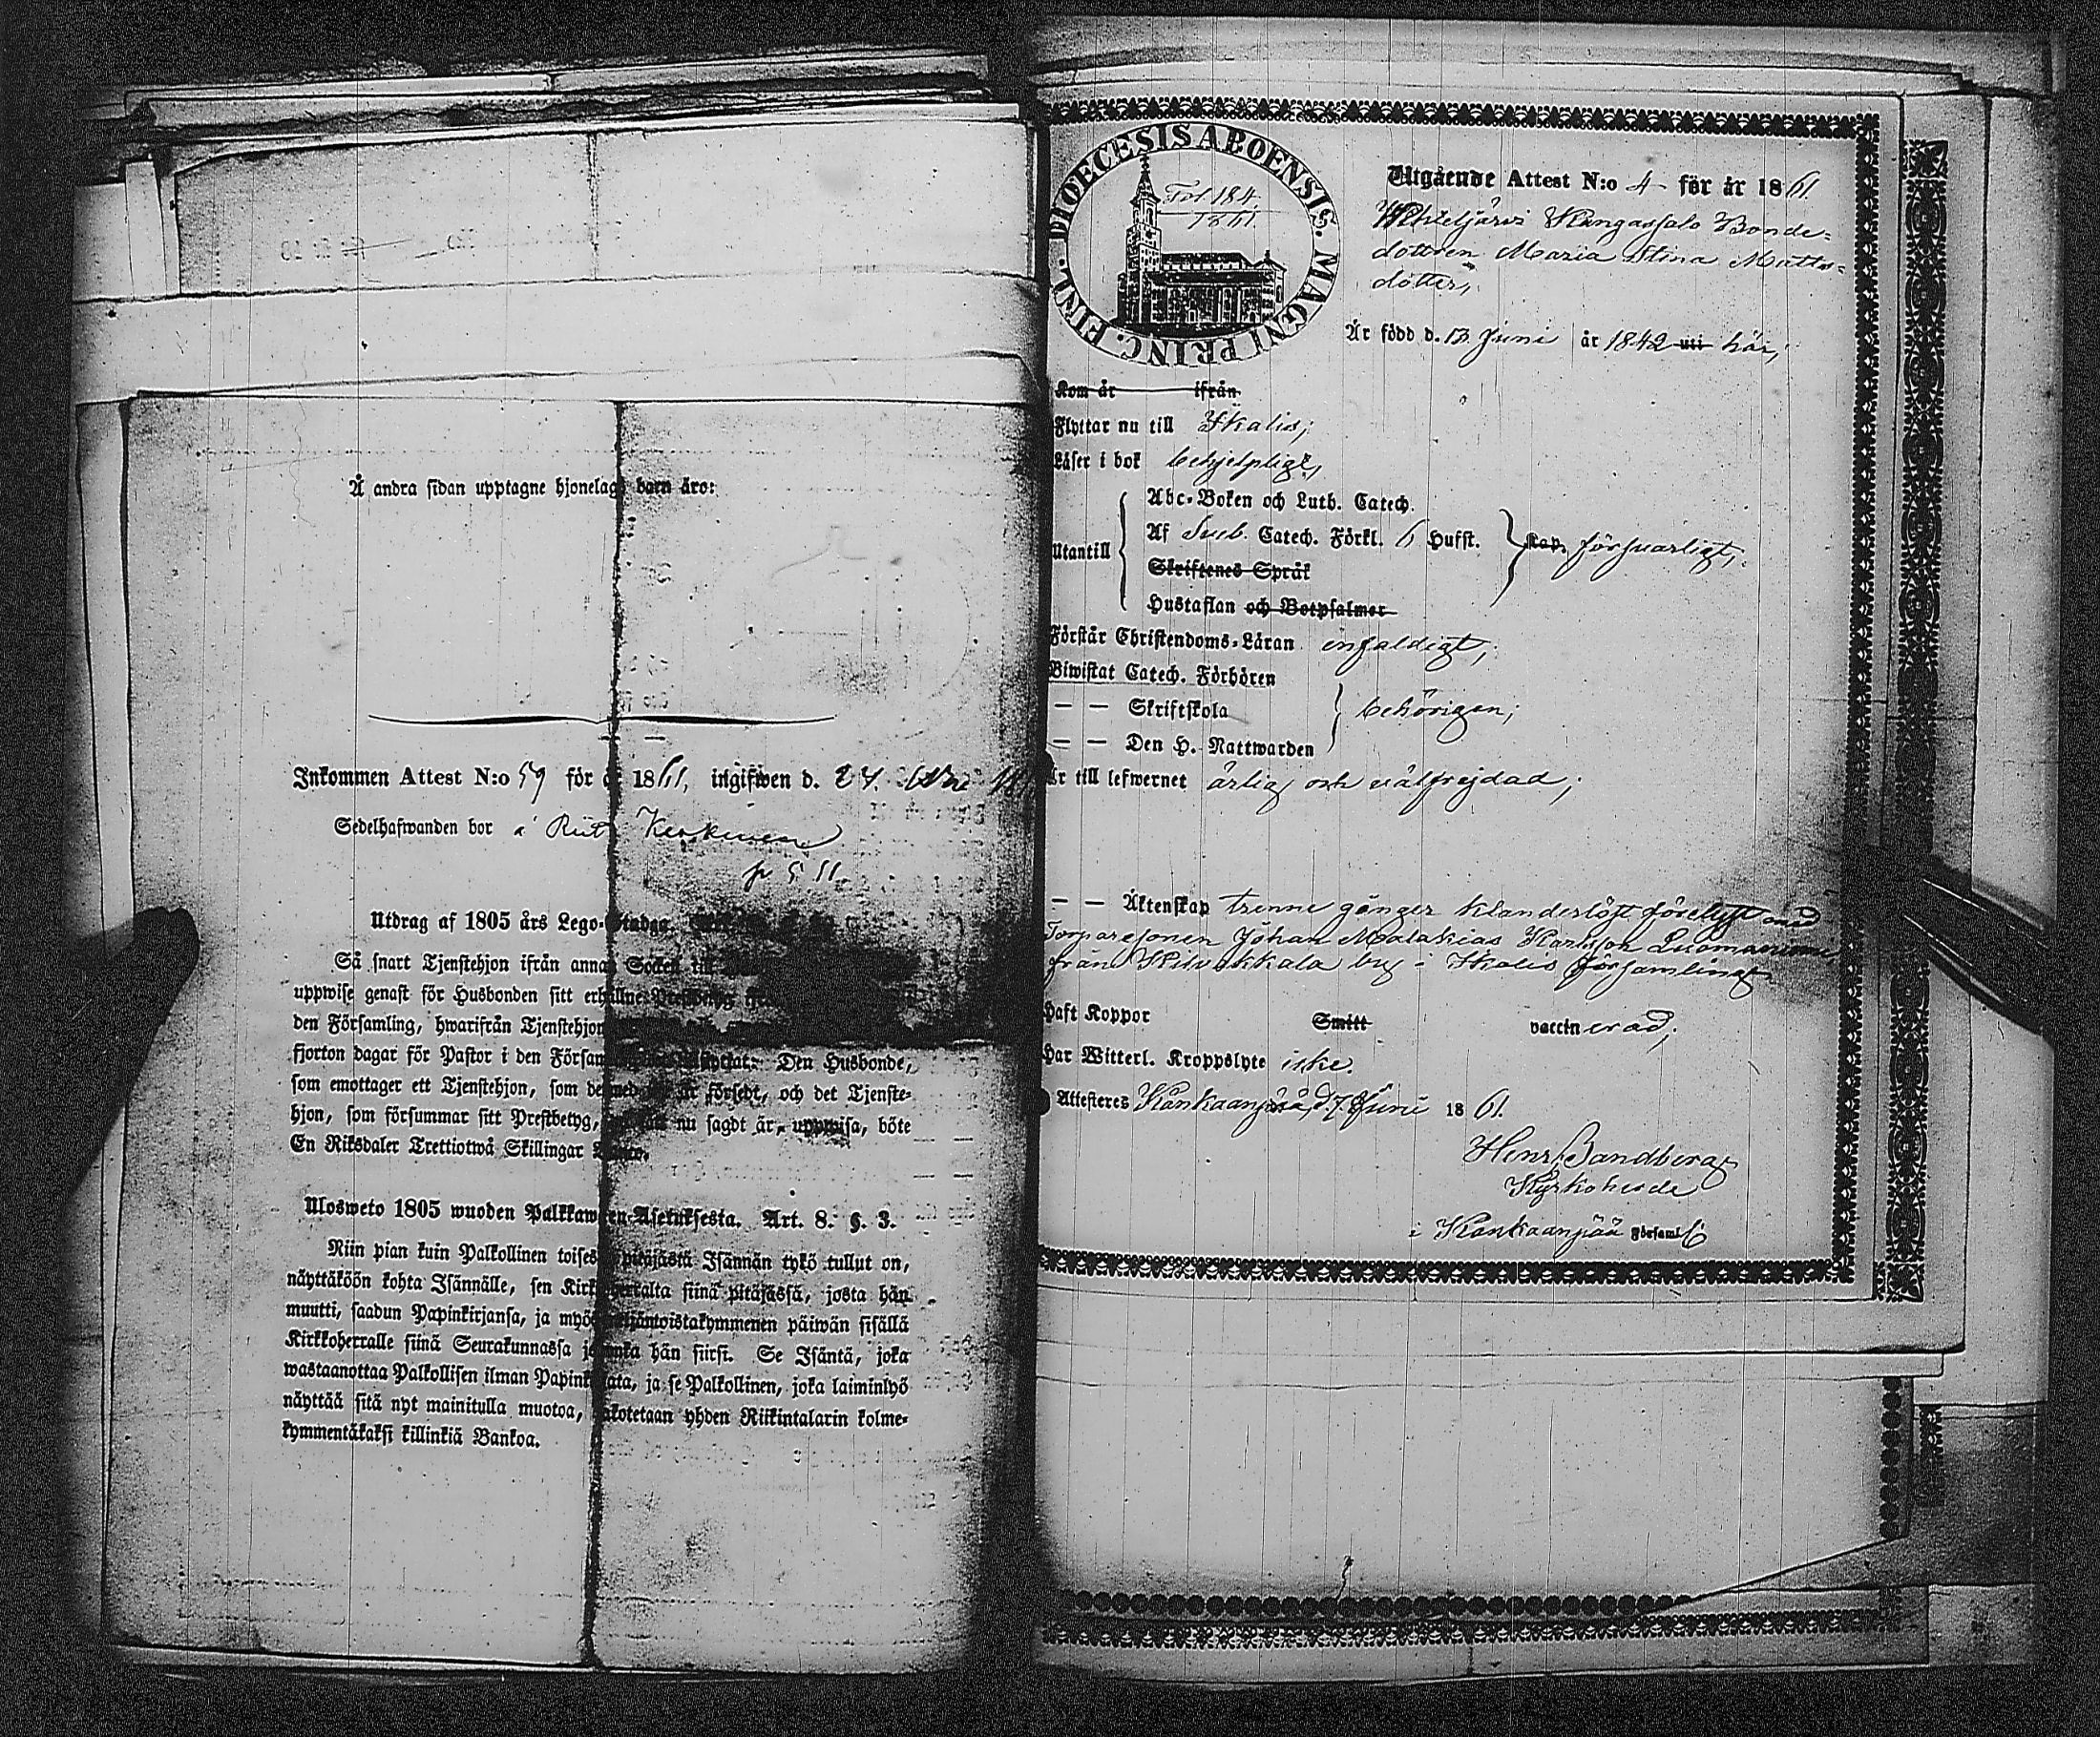 Å andra sidan upptagne hjonelags barn äro:
Inkommen Attest N:o 59 för år 1861, ingifwen d. 24. 18
Sedelhafwanden bor å
p 511.
Utdrag af 1805 års Lego-Stadga.
Så snart Tjenstehjon ifrån annan Socken till
uppwise genast för Husbonden sitt erhållne Prestbetyg
den Församling, hwarifrån Tjenstehjon
fjorton dagar för Pastor i den Försam Den Husbonde,
som emottager ett Tjenstehjon, som dermed är försedt, och det Tjenste-
hjon, som försummar sitt Prestbetyg, nu sagdt är, uppwisa, böte
En Riksdaler Trettiotwå Skillingar Banco.
Ulosweto 1805 wuoden Palkkawäen-Asetuksesta. Art. 8. §. 3.
Niin pian kuin Palkollinen toisesta pitäjästä Isännän tykö tullut on,
näyttäköön kohta Isännälle, sen Kirkkoherralta siinä pitäjässä, josta hän
muutti, saadun Papinkirjansa, ja myös neljäntoistakymmenen päiwän sisällä
Kirkkoherralle siinä Seurakunnassa johonka hän siirsi. Se Isäntä, joka
wastaanottaa Palkollisen ilman Papinkirjata, ja se Palkollinen, joka laiminlyö
näyttää sitä nyt mainitulla muotoa, sakotetaan yhden Riikintalarin kolme-
kymmentäkaksi killinkiä Bankoa.
DIOECESIS ABOENSIS. MAGNI PRINC. FINL.
Fol 184
1861.
Utgående Attest N:o 4 för år 1861.
Wihteljärvi Kangassalo Bonde-
dottren Maria Stina Matts-
dotter,
Är född d. 13 Juni år 1842 uti här,
Kom år ifrån
Flyttar nu till Ikalis;
Läser i bok behjelpligt,
Utantill
Abc-Boken och Luth. Catech.
Af Sveb. Catech. Förkl. 6 Hufst.
Skriftenes Språk
Hustaflan och Botpsalmer
kap. försvarligt,
Förstår Christendoms-Läran enfaldigt;
Biwistat Catech. Förhören
— — Skriftskola
— — Den H. Nattwarden
behörigen;
Är till lefwernet ärlig och välfrejdad;
— — Äktenskap trenne gånger klanderlöst förelyst med
Torparesonen Johan Malakias Karlsson Luomaninen
från Kilvakkala by i Ikalis församling.
Haft Koppor Smitt vaccinerad;
Har Witterl. Kroppslyte icke.
Attesteres Kankaanpää, d. 7 Juni 1861.
Henr. Sandberg
Kyrkoherde
i Kankaanpää Församl